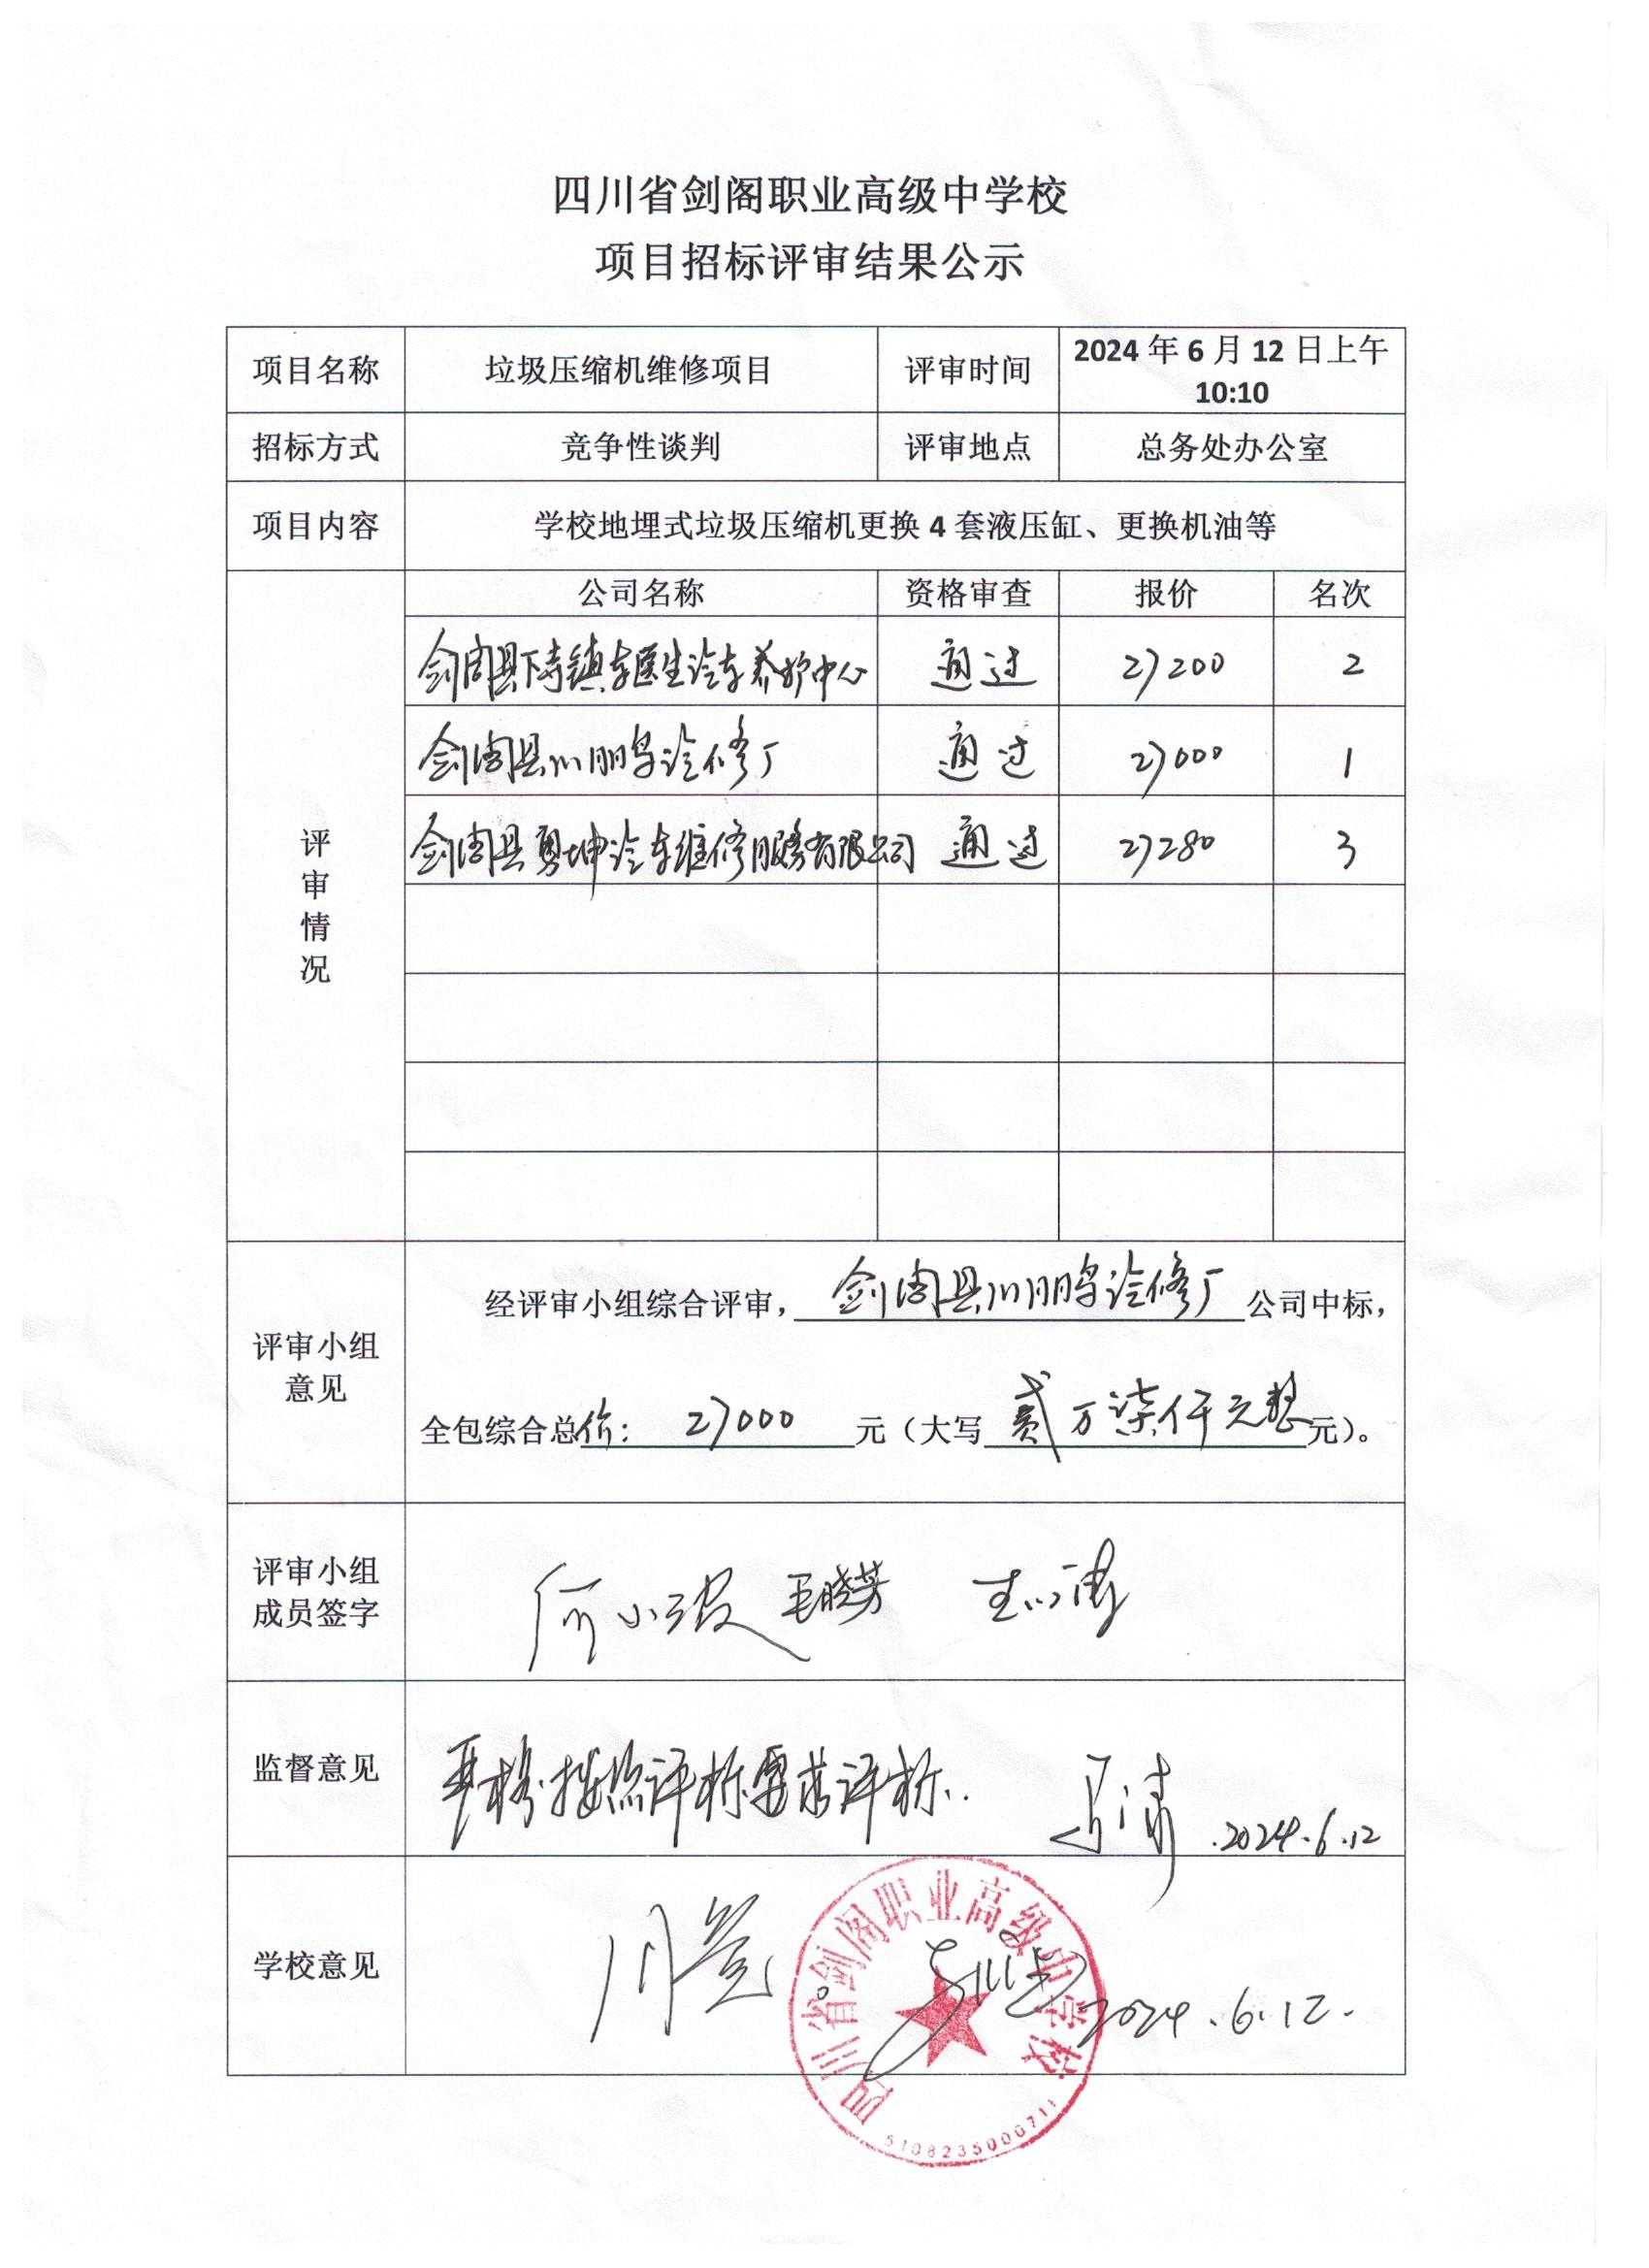 四川省剑阁职业高级中学校
项目招标评审结果公示
项目名称 垃圾压缩机维修项目 评审时间 2024年6月12日上午
10:10
招标方式 竞争性谈判 评审地点 总务处办公室
项目内容 学校地埋式垃圾压缩机更换4套液压缸、更换机油等
评审情况
公司名称 资格审查 报价 名次
剑阁县下寺镇车医生汽车养护中心 通过 27200 2
剑阁县川鹏汽修厂 通过 27000 1
剑阁县勇坤汽车维修服务有限公司 通过 27280 3
评审小组
意见
经评审小组综合评审，剑阁县川鹏汽修厂公司中标，
全包综合总价：27000元（大写贰万柒仟元整元）。
评审小组
成员签字
何小波 毛晓芳
监督意见
严格按照评标要求评标.
2024.6.12
学校意见
同意。
2024.6.12.
四川省剑阁职业高级中学校
5108235000711